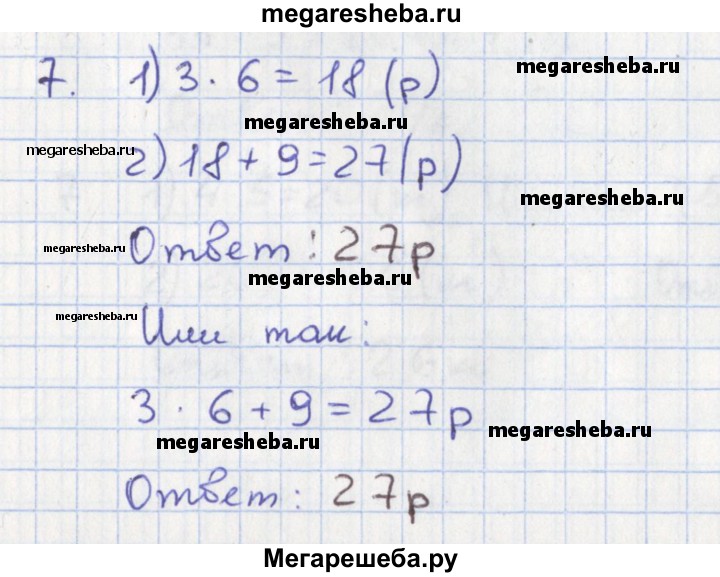 megaresheba.ru
7. 1) 3 · 6 = 18 (р)
megaresheba.ru
megaresheba.ru
megaresheba.ru
2) 18 + 9 = 27 (р)
megaresheba.ru
Ответ : 27р
megaresheba.ru
megaresheba.ru
megaresheba.ru
Или так:
3 · 6 + 9 = 27р
megaresheba.ru
megaresheba.ru
Ответ : 27р
Мегарешеба.ру